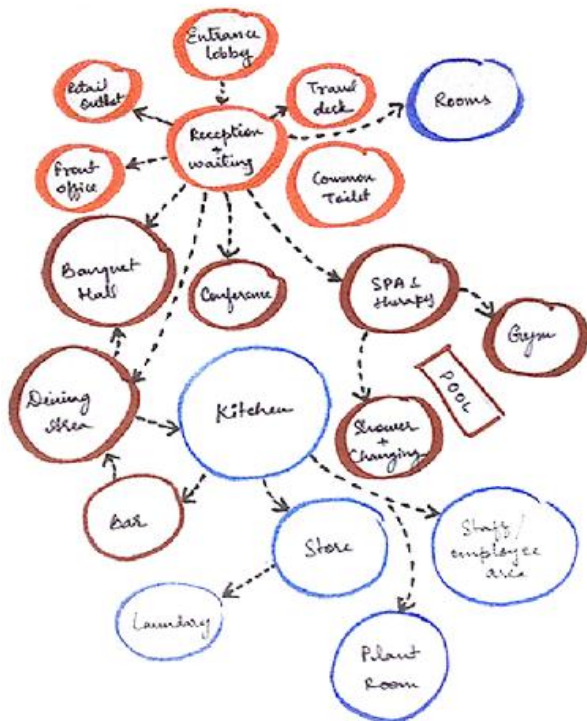 Entrance
lobby
Retail
outlet
Travel
desk
Rooms
Reception
+
waiting
Front
office
Common
Toilet
Banquet
Hall
Conference
SPA &
therapy
Gym
Dining
Area
Kitchen
POOL
Shower
+
Changing
Bar
Store
Staff/
employee
area
Laundry
Plant
Room